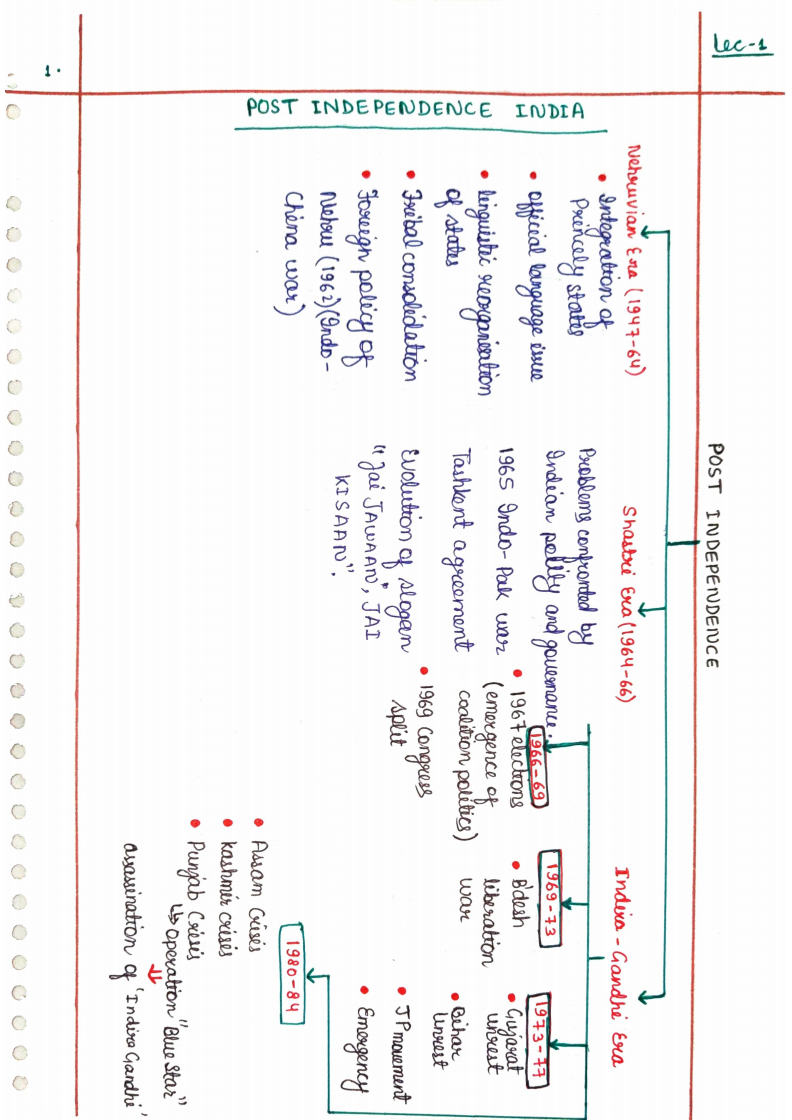 Lec-1
1.
POST INDEPENDENCE INDIA
POST INDEPENDENCE
Nehruvian Era (1947-64)
• Integration of
Princely states
• official language issue
• linguistic reorganisation
of states
• Tribal consolidation
• Foreign policy of
Nehru (1962) (Indo-
China war)
Shastri Era (1964-66)
Problems confronted by
Indian polity and governance.
1965 Indo-Pak war
Tashkent agreement
Evolution of slogan
"Jai JAWAAN", JAI
KISAAN".
Indira-Gandhi Era
1966-69
• 1967 elections
(emergence of
coalition politics)
• 1969 Congress
split
1969-73
• B'desh
liberation
war
1973-77
• Gujarat
unrest
• Bihar
unrest
• JP movement
• Emergency
1980-84
• Assam Crisis
• Kashmir crisis
• Punjab Crisis
↳ Operation "Blue Star"
⇓
assassination of 'Indira Gandhi'